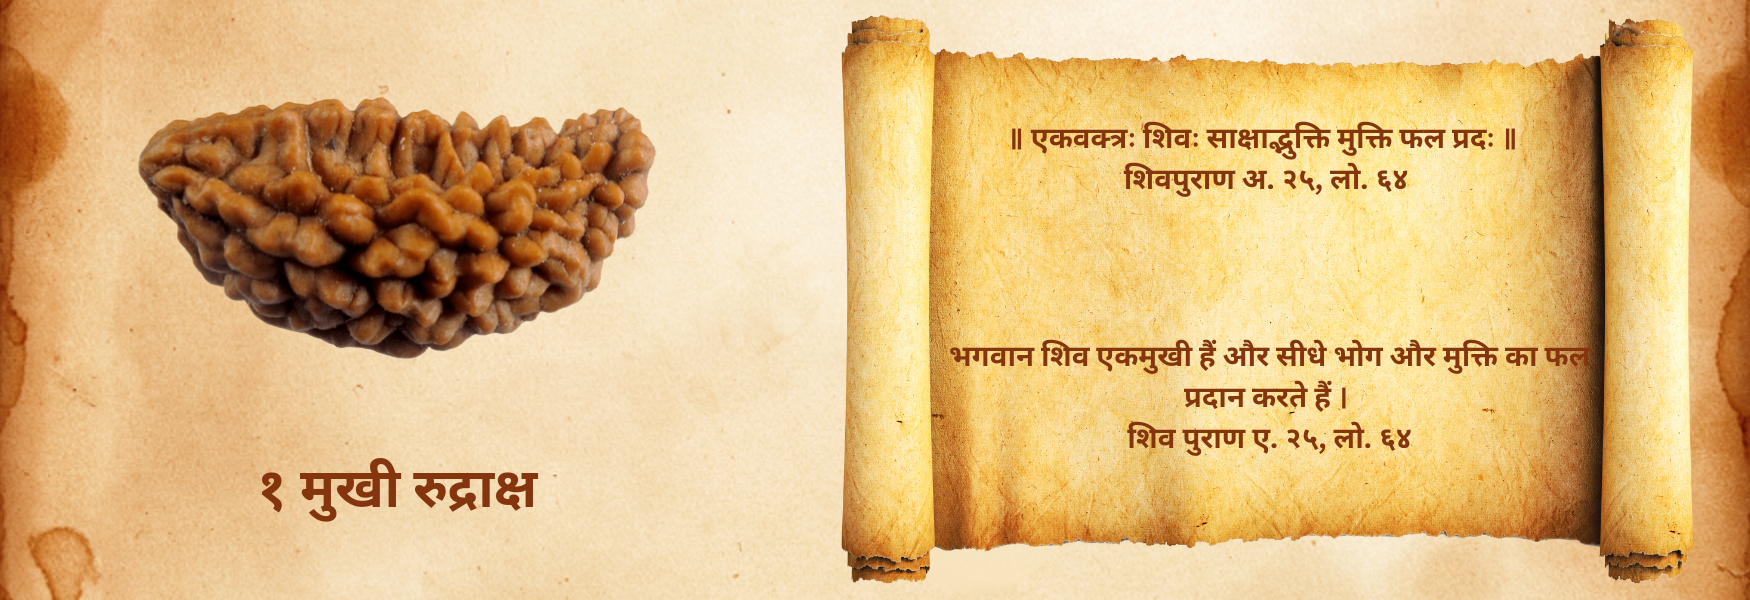 १ मुखी रुद्राक्ष
॥ एकवक्त्रः शिवः साक्षाद्भुक्ति मुक्ति फल प्रदः ॥
शिवपुराण अ. २५, लो. ६४
भगवान शिव एकमुखी हैं और सीधे भोग और मुक्ति का फल
प्रदान करते हैं ।
शिव पुराण ए. २५, लो. ६४